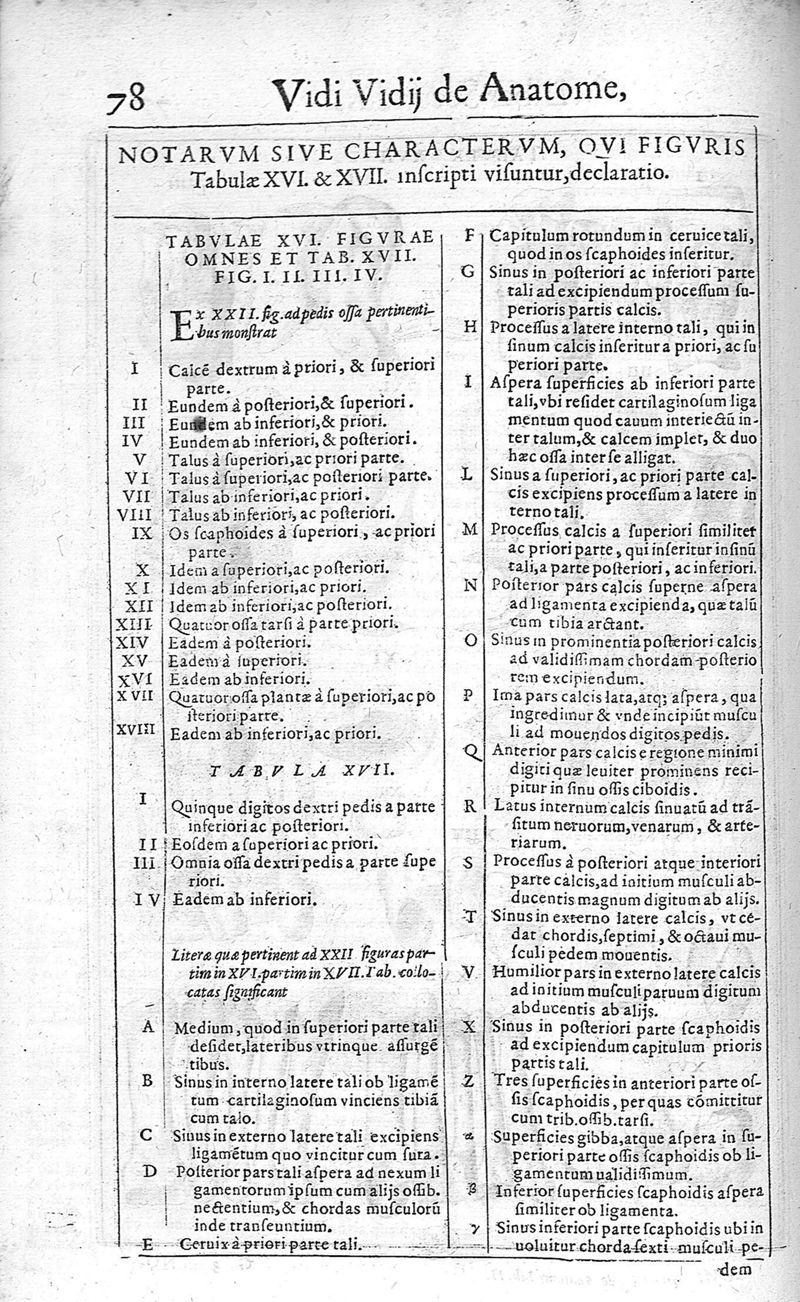 78
Vidi Vidij de Anatome,
NOTARVM SIVE CHARACTERVM, QVI FIGVRIS
Tabulæ XVI. & XVII. inſcripti viſuntur, declaratio.
TABVLAE XVI. FIGVRAE
OMNES ET TAB. XVII.
FIG. I. II. III. IV.
Ex XXII. fig. ad pedis oſſa pertinenti-
bus monſtrat
I Calcē dextrum à priori, & ſuperiori
parte.
II Eundem à poſteriori, & ſuperiori.
III Eundem ab inferiori, & priori.
IV Eundem ab inferiori, & poſteriori.
V Talus à ſuperiori, ac priori parte.
VI Talus à ſuperiori, ac poſteriori parte.
VII Talus ab inferiori, ac priori.
VIII Talus ab inferiori, ac poſteriori.
IX Os ſcaphoides à ſuperiori, ac priori
parte.
X Idem a ſuperiori, ac poſteriori.
XI Idem ab inferiori, ac priori.
XII Idem ab inferiori, ac poſteriori.
XIII Quatuor oſſa tarſi à parte priori.
XIV Eadem à poſteriori.
XV Eadem à ſuperiori.
XVI Eadem ab inferiori.
XVII Quatuor oſſa plantæ à ſuperiori, ac po
ſteriori parte.
XVIII Eadem ab inferiori, ac priori.
TABVLA XVII.
I Quinque digitos dextri pedis a parte
inferiori ac poſteriori.
II Eoſdem a ſuperiori ac priori.
III Omnia oſſa dextri pedis a parte ſupe
riori.
IV Eadem ab inferiori.
Literæ quæ pertinent ad XXII figuras par-
tim in XVI. partim in XVII. Tab. collo-
catas ſignificant
A Medium, quod in ſuperiori parte tali
deſidet, lateribus vtrinque aſſurgē
tibus.
B Sinus in interno latere tali ob ligamē
tum cartilaginoſum vinciens tibiā
cum talo.
C Sinus in externo latere tali excipiens
ligamētum quo vincitur cum ſura.
D Poſterior pars tali aſpera ad nexum li
gamentorum ipſum cum alijs oſſib.
nectentium, & chordas muſculorū
inde tranſeuntium.
E Ceruix à priori parte tali.
F Capitulum rotundum in ceruice tali,
quod in os ſcaphoides inſeritur.
G Sinus in poſteriori ac inferiori parte
tali ad excipiendum proceſſum ſu-
perioris partis calcis.
H Proceſſus a latere interno tali, qui in
ſinum calcis inſeritur a priori, ac ſu
periori parte.
I Aſpera ſuperficies ab inferiori parte
tali, vbi reſidet cartilaginoſum liga
mentum quod cauum interiectū in-
ter talum, & calcem implet, & duo
hæc oſſa inter ſe alligat.
L Sinus a ſuperiori, ac priori parte cal-
cis excipiens proceſſum a latere in
terno tali.
M Proceſſus calcis a ſuperiori ſimiliter
ac priori parte, qui inſeritur in ſinū
tali, a parte poſteriori, ac inferiori.
N Poſterior pars calcis ſuperne aſpera
ad ligamenta excipienda, quæ talū
cum tibia arctant.
O Sinus in prominentia poſteriori calcis
ad validiſſimam chordam poſterio
rem excipiendum.
P Ima pars calcis lata, atq; aſpera, qua
ingredimur & vnde incipiūt muſcu
li ad mouendos digitos pedis.
Q Anterior pars calcis e regione minimi
digiti quæ leuiter prominens reci-
pitur in ſinu oſſis ciboidis.
R Latus internum calcis ſinuatū ad trā-
ſitum neruorum, venarum, & arte-
riarum.
S Proceſſus à poſteriori atque interiori
parte calcis, ad initium muſculi ab-
ducentis magnum digitum ab alijs.
T Sinus in externo latere calcis, vt cē-
dat chordis, ſeptimi, & octaui mu-
ſculi pedem mouentis.
V Humilior pars in externo latere calcis
ad initium muſculi paruum digitum
abducentis ab alijs.
X Sinus in poſteriori parte ſcaphoidis
ad excipiendum capitulum prioris
partis tali.
Z Tres ſuperficies in anteriori parte oſ-
ſis ſcaphoidis, per quas cōmittitur
cum trib. oſſib. tarſi.
α Superficies gibba, atque aſpera in ſu-
periori parte oſſis ſcaphoidis ob li-
gamentum ualidiſſimum.
β Inferior ſuperficies ſcaphoidis aſpera
ſimiliter ob ligamenta.
γ Sinus inferiori parte ſcaphoidis ubi in
uoluitur chorda ſexti muſculi pe-
dem